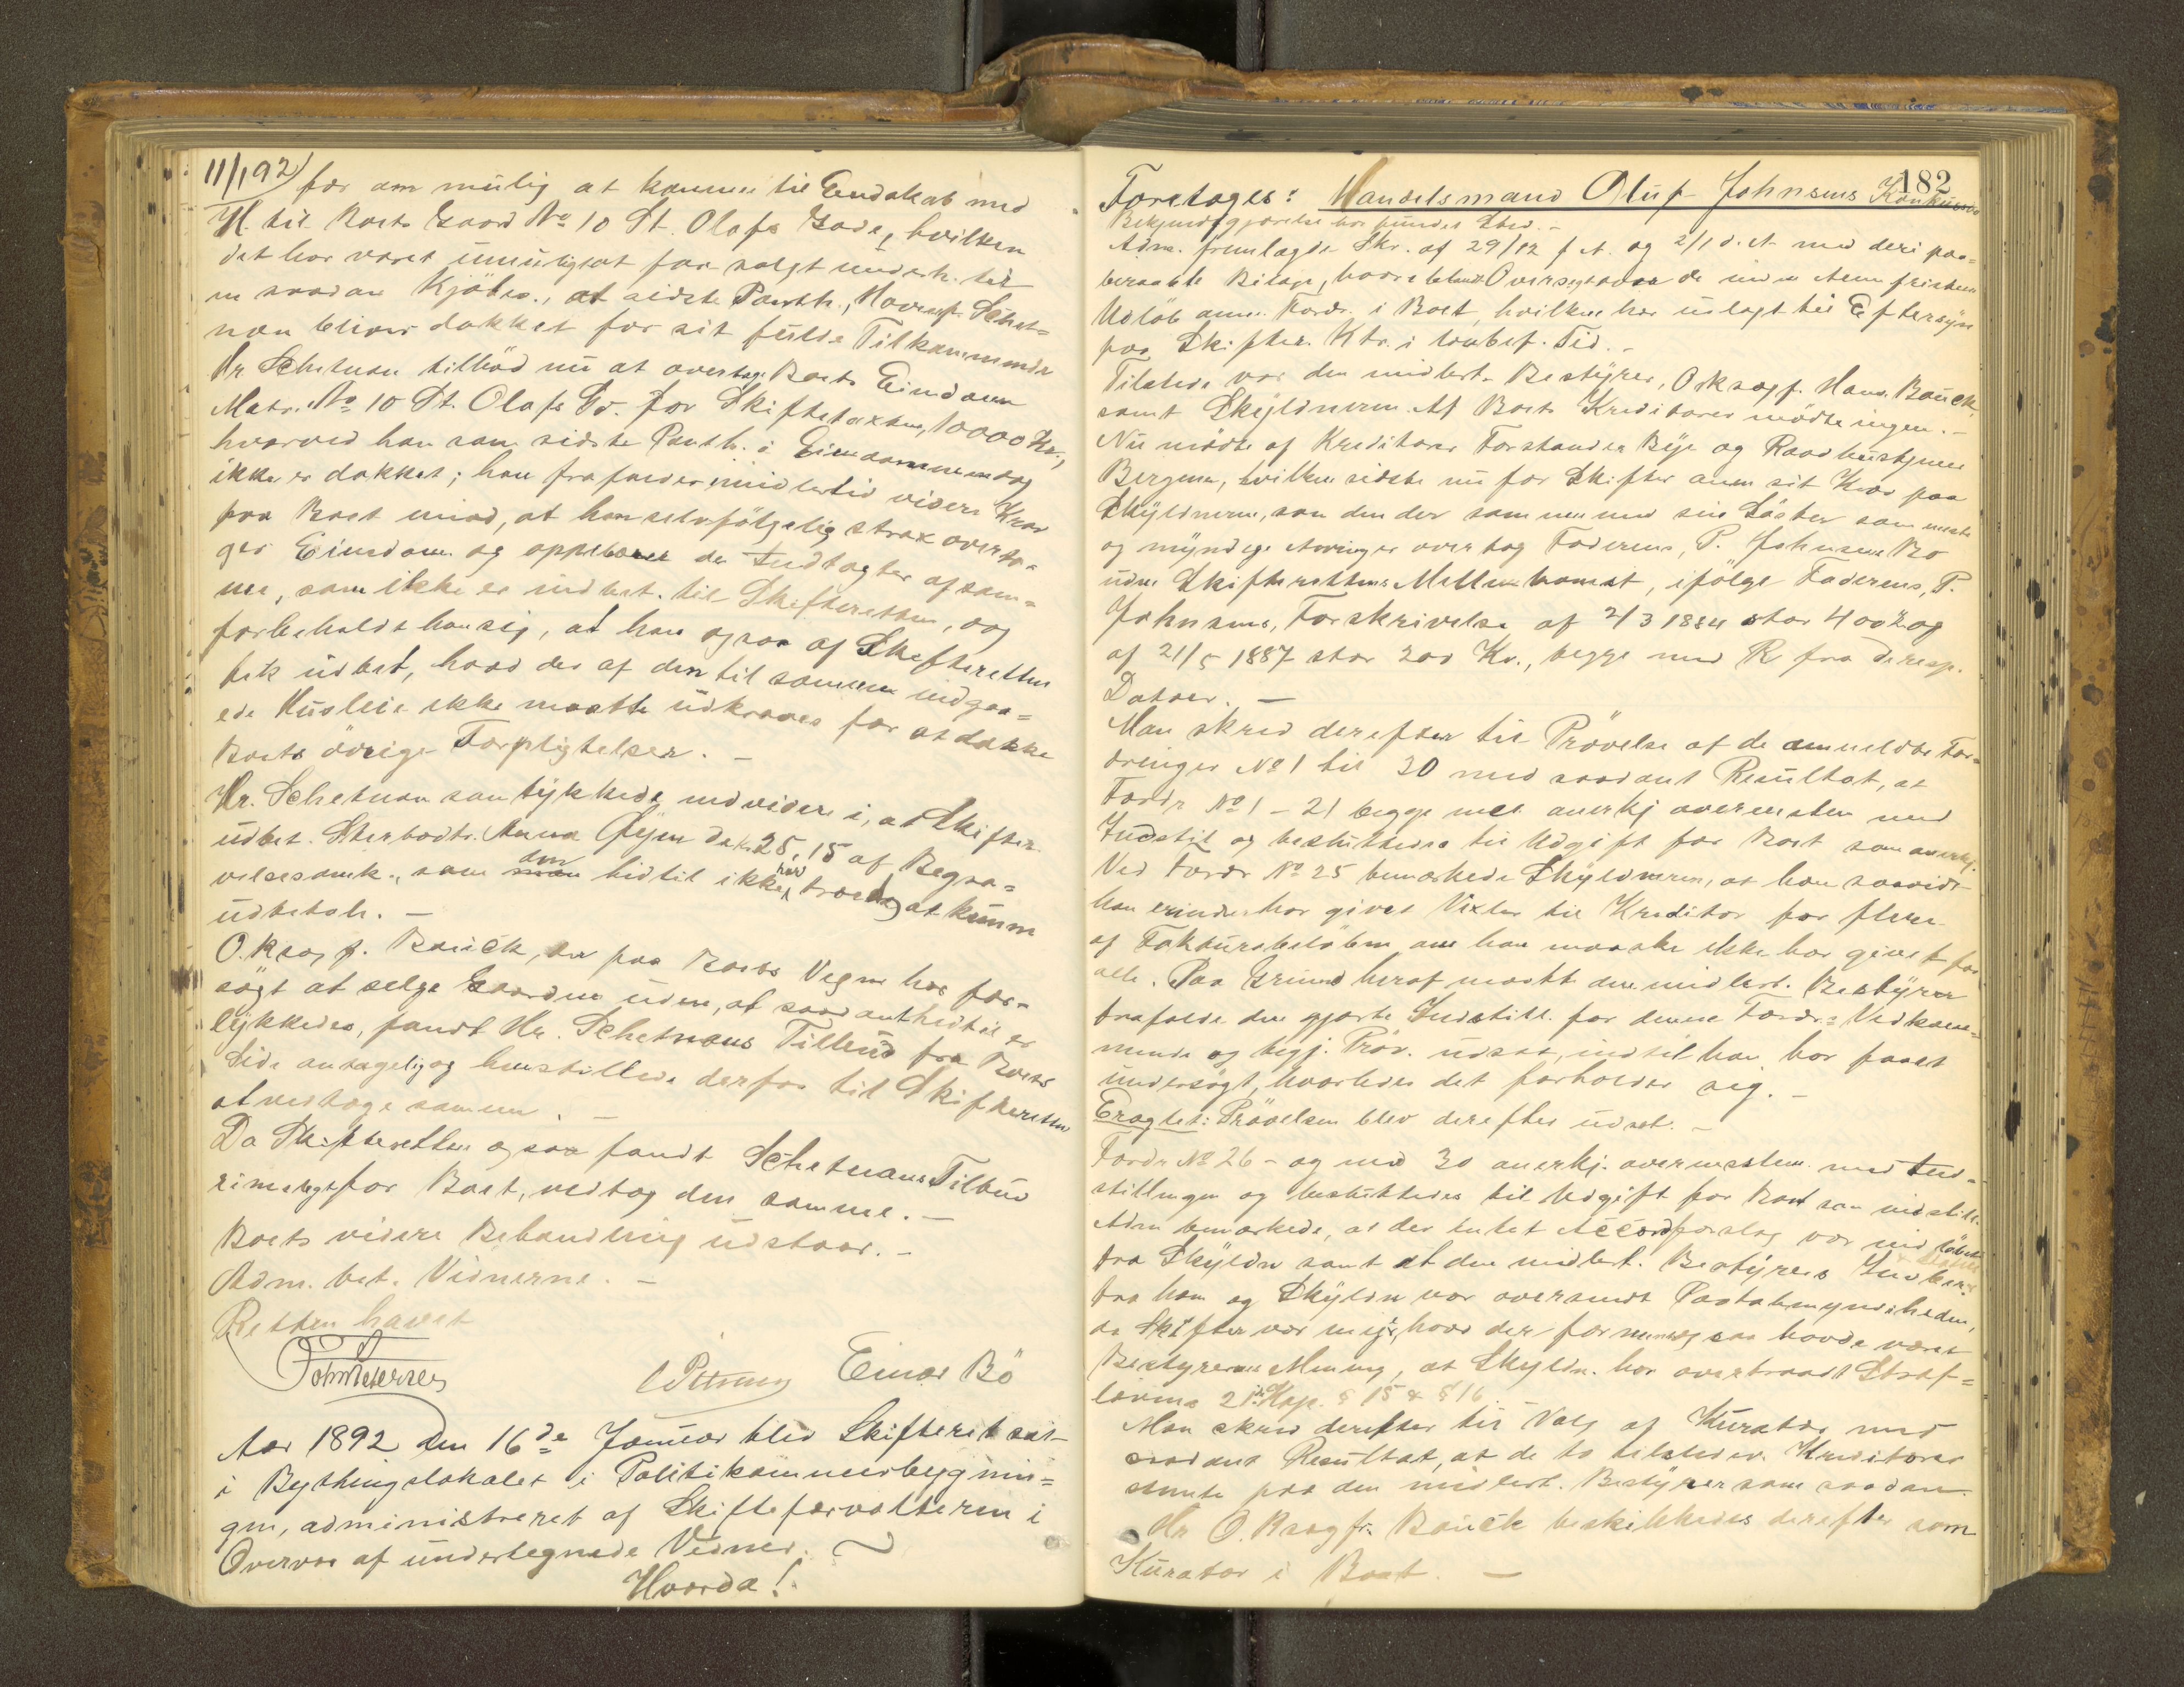 11/1 92) for om mulig at komme til Endskab med
H. til Boets Gaard No 10 St. Olafs Gade, hvilken
det har været umuligt at faa solgt underh. til
en saadan Kjøbes., at sidste Panth., Havnef. Schet=
nan bliver dækket for sit fulde Tilkommende
Hr. Schetnan tilbød nu at overtage Boets Eiendom
Matr. No 10 St. Olafs Gd. for Skiftetaxten, 10000 Kr.,
hvorved han som sidste Panth. i Eiendommen dog
ikke er dækket; han frafalder imidlertid videre Krav
paa Boet imod, at han selvfølgelig strax overta=
ger Eiendom og oppebærer de Indtægter af sam=
me, som ikke er indbet. til Skifteretten, og
forbeholdt han sig, at han ogsaa af Skifteretten
fik udbet, hvad der af den til samme indgaa=
ede Husleie ikke maatte udkræves for at dække
Boets øvrige Forpligtelser. –
Hr. Schetnan samtykkede endvidere i, at Skifter.
udbet. Sterbodts. Anna Øyen de Kr. 25,15 af Begra=
velsesomk., som man den hidtil ikke har troet at kunne
udbetale. –
O.Ksag f. Bauck, der paa Boets Vegne har for=
søgt at selge Gaarden uden, at saadant hidtil er
lykkedes, fandt Hr. Schetnans Tilbud fra Boets
Side antagelig og henstillede derfor til Skifteretten
at vedtage samme. –
Da Skifteretten ogsaa fandt Schetnans Tilbud
rimeligt for Boet, vedtog den samme. –
Boets videre Behandling udstaar. –
Adm. bet. Vidnerne. –
Retten hævet
Einar Bö
Aar 1892 den 16de Januar blev Skifteret sat
i Bythingslokalet i Politikammerbygnin=
gen, administreret af Skifteforvalteren i
Overvær af undertegnede Vidner.
Hvorda!
182
Foretoges: Handelsmand Oluf Johnsens Konkursbo
Bekjendtgjørelse har fundet Sted. –
Adm. fremlagde Skr. af 29/12 f. A. og 2/1 d. A. med deri paa=
beraabte Bilage, hvoriblandt Oversigt over de inden Anm fristens
Udløb anm. Fordr. i Boet, hvilken har udlagt til Eftersyn
paa Skifter. Ktr. i lovbef. Tid. –
Tilstede var den midlert. Bestyrer, O.Ksagf. Hans Bauck,
samt Skyldneren. Af Boets Kreditorer mødte ingen. –
Nu mødte af Kreditorer Forstander Bye og Raadhustjener
Bergman, hvilken sidste nu for Skifter anm sit Krav paa
Skyldneren, som den der sammen med sine Søster som eneste
og myndige Arvinger overtog Faderens, P. Johnsens Bo
uden Skifterettens Mellemkomst, ifølge Faderens, P.
Johnsens, Forskrivelse af 2/3 1884 stor 400 Kr og
af 21/5 1887 stor 200 Kr., begge med R fra de resp.
Datoer. –
Man skred derefter til Prøvelse af de anmeldte For=
dringer No 1 til 30 med saadant Resultat, at
Fordr No 1 – 21 begge incl anerkj overensstem med
Indstil og besluttedes til Udgift for Boet som anerkj.
Ved Fordr No 25 bemærkede Skyldneren, at han saavidt
han erindrer har givet Vexler til Kreditor for flere
af Fakturabeløbene, om han maaske ikke har givet for
alle. Paa Grund heraf maatt den midlert. Bestyrer
frafalde den gjorte Indstill. for denne Fordr=s Vedkom=
mende og begj. Prøv. udsat, indtil han har faaet
undersøgt, hvorledes det forholder sig. –
Eragtet: Prøvelsen blev derefter udsat. –
Fordr No 26 – og med 30 anerkj. overensstem. med Ind=
stillingen og besluttedes til Udgift for Boet som indstill.
Adm bemærkede, at der intet Accordforslag var indløbet
fra Skyldn samt at den midlert. Bestyrers Indber.
fra ham og Skyldn var oversendt Paatalemyndigheden,
da Skifter var enig i, hvad der formentlig saa havde været
Bestyrerens Mening, at Skyldn. har overtraadt Straf=
lovens 21de Kap. § 15 & § 16
Man skred derefter til Valg af Kurator med
saadant Resultat, at de to tilstedev. Kreditorer
stemte paa den midlert. Bestyrer som saadan.
Hr O.Ksagfr. Bauck beskikkedes derefter som
Kurator i Boet. –